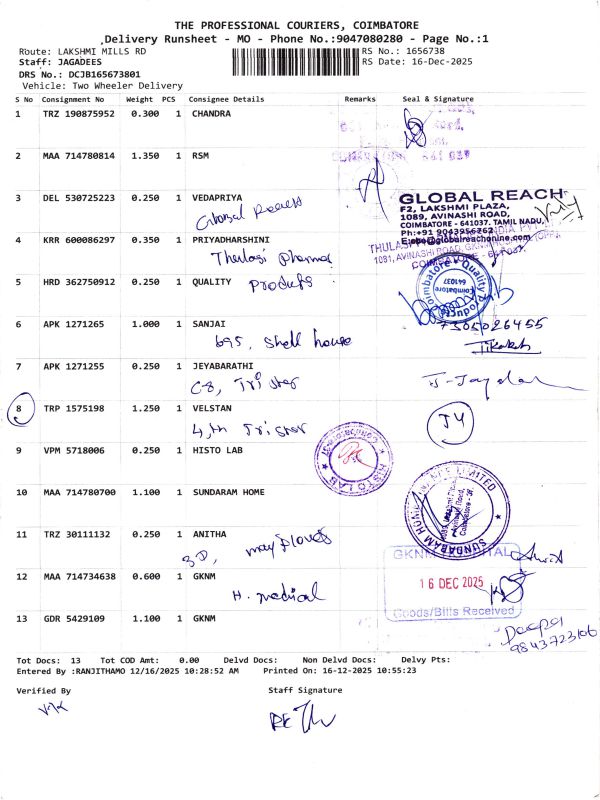 THE PROFESSIONAL COURIERS, COIMBATORE
Delivery Runsheet - MO - Phone No.:9047080280 - Page No.:1
Route: LAKSHMI MILLS RD
RS No.: 1656738
Staff: JAGADEES
RS Date: 16-Dec-2025
DRS No.: DCJB165673801
Vehicle: Two Wheeler Delivery
S No Consignment No Weight PCS Consignee Details Remarks Seal & Signature
1 TRZ 190875952 0.300 1 CHANDRA
2 MAA 714780814 1.350 1 RSM
3 DEL 530725223 0.250 1 VEDAPRIYA
Global Reach
GLOBAL REACH
F2, LAKSHMI PLAZA,
1089, AVINASHI ROAD,
COIMBATORE - 641037. TAMIL NADU,
Ph:+91 9043956762
4 KRR 600086297 0.350 1 PRIYADHARSHINI
Thulasi pharma
THULASI
1081, AVINASHI ROAD,
COIMBATORE
5 HRD 362750912 0.250 1 QUALITY
Products
Coimbatore
641037
6 APK 1271265 1.000 1 SANJAI
695, Shell house
7305026455
7 APK 1271255 0.250 1 JEYABARATHI
C8, Tri star
8 TRP 1575198 1.250 1 VELSTAN
4,th Tri star
9 VPM 5718006 0.250 1 HISTO LAB
HISTO LAB
10 MAA 714780700 1.100 1 SUNDARAM HOME
SUNDARAM HOME FINANCE LIMITED
11 TRZ 30111132 0.250 1 ANITHA
3D,
12 MAA 714734638 0.600 1 GKNM
H. medical
GKNM HOSPITAL
16 DEC 2025
Goods/Bills Received
13 GDR 5429109 1.100 1 GKNM
Deepa
9843723106
Tot Docs: 13 Tot COD Amt: 0.00 Delvd Docs: Non Delvd Docs: Delvy Pts:
Entered By :RANJITHAMO 12/16/2025 10:28:52 AM Printed On: 16-12-2025 10:55:23
Verified By Staff Signature